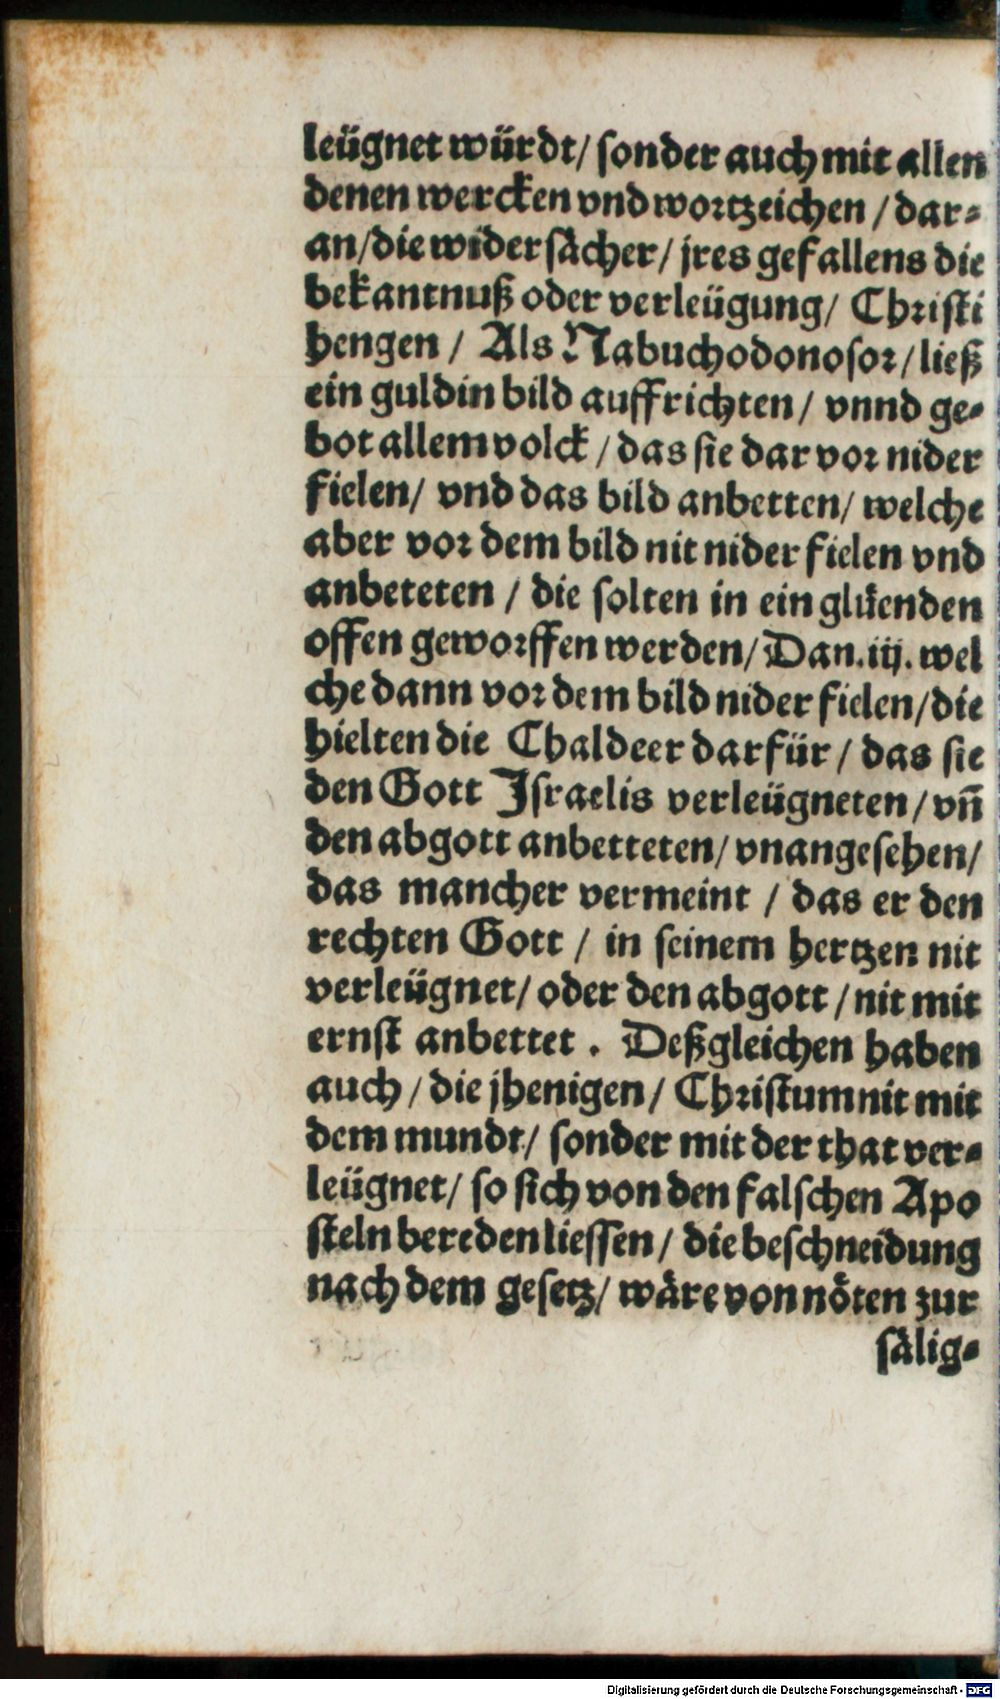 leügnet würdt/ sonder auch mit allen
denen wercken vnd wortzeichen / dar-
an/die widersächer/ jres gefallens die
bekantnuß oder verleügung/ Christi
hengen / Als Nabuchodonosor/ließ
ein guldin bild auffrichten/ vnnd ge-
bot allem volck / das sie dar vor nider
fielen/ vnd das bild anbetten/ welche
aber vor dem bild nit nider fielen vnd
anbeteten / die solten in ein glüenden
offen geworffen werden/ Dan.iij. wel
che dann vor dem bild nider fielen/die
hielten die Chaldeer darfür / das sie
den Gott Israelis verleügneten/ vñ
den abgott anbetteten/ vnangesehen/
das mancher vermeint / das er den
rechten Gott / in seinem hertzen nit
verleügnet/ oder den abgott /nit mit
ernst anbettet . Deßgleichen haben
auch / die jhenigen/ Christum nit mit
dem mundt/ sonder mit der that ver-
leügnet/ so sich von den falschen Apo
steln bereden liessen / die beschneidung
nach dem gesetz/ wäre von nöten zur
sälig-
Digitalisierung gefördert durch die Deutsche Forschungsgemeinschaft - DFG